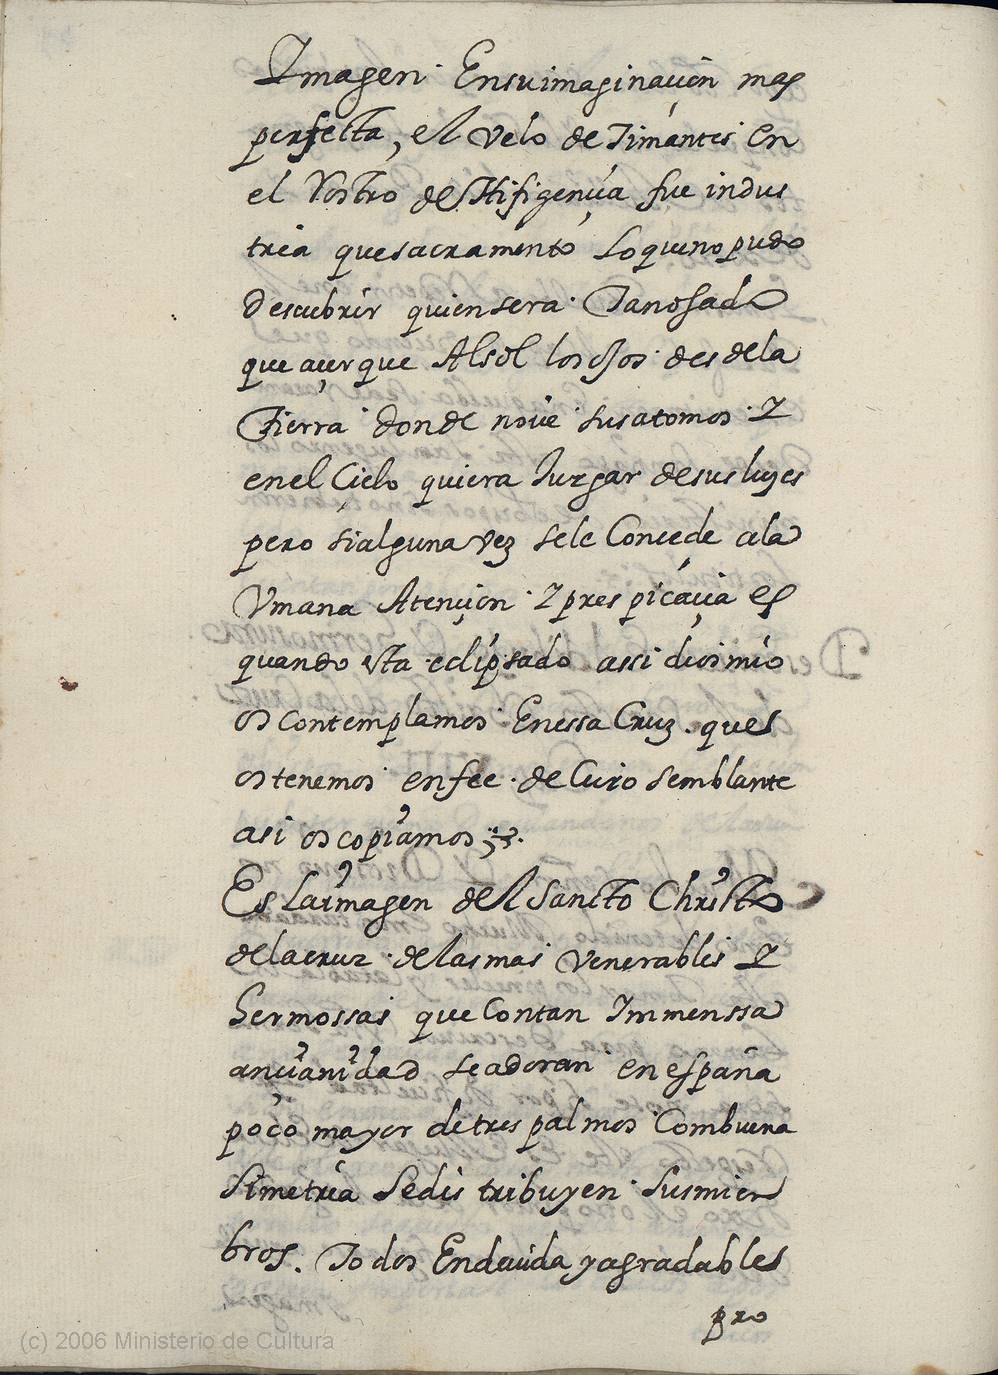 Imagen Ensuimaginaçion mas
perfecta, el velo de Timantes en
el Rostro de Hifigenia fue indus
tria que sacramentó lo que no pudo
descubrir quien sera Tan osado
que açerque Al sol los ojos desde la
Tierra donde no ve sus atomos Y
en el Cielo quiera Iuzgar de sus luzes
pero si alguna vez sele Concede a la
Vmana Atençion Y prespicaçia es
quando esta eclipsado assi dios mio
os contemplamos En essa Cruz. que es
os tenemos en fee de Cuio semblante
asi os copiamos
Es La imagen del Sancto Christo
de la cruz de las mas Venerables Y
hermossas que Con tan Immenssa
ançianidad se adoran en españa
poco mayor de tres palmos Con buena
simetria se dis tribuyen sus miem
bros. Todos En devida y agradables
pro
(c) 2006 Ministerio de Cultura